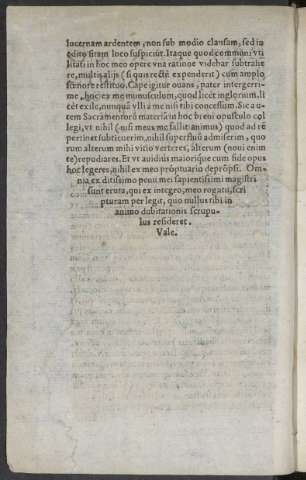 lucernam ardentem, non sub modio clausam, sed in
edito sitam loco suspiciūt. Itaque quod communi vti
litati in hoc meo opere vna ratiōe videbar subtrahe
re, multis aliis (si quis recte expenderit) cum amplo
fœnore restituo. Cape igitur ouans, pater intergerri-
me, hoc ex me munusculum, quod licet inglorium, li
cet exile, nunquā vlli a me nisi tibi concessum. Sic au
tem Sacramentorū materiā in hoc breui opusculo col
legi, vt nihil (nisi meus me fallit animus) quod ad rē
pertinet subticuerim, nihil superfluū admiserim, quo
rum alterum mihi vicio verteres, alterum (noui enim
te) repudiares. Et vt auidius maiorique cum fide opus
hoc legeres, nihil ex meo prōptuario deprōpsi. Om-
nia ex ditissimo penu mei sapientissimi magistri
sunt eruta, qui ex integro, meo rogatu, scri
pturam perlegit, quo nullus tibi in
animo dubitationis scrupu-
lus resideret.
Vale.